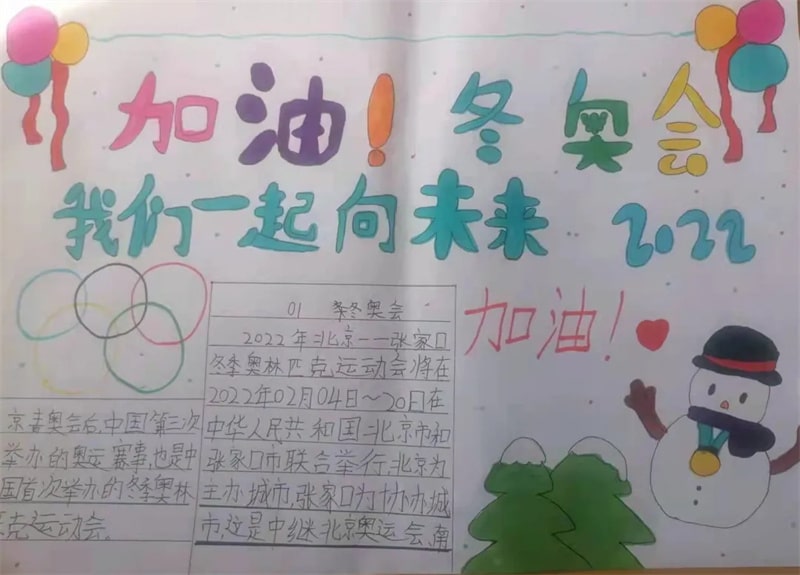 加油！冬奥会
我们一起向未来 2022
加油！
01 冬奥会
2022年北京——张家口
冬季奥林匹克运动会将在
2022年02月04日～20日在
中华人民共和国北京市和
张家口市联合举行，北京为
主办城市，张家口为协办城
市，这是中继北京奥运会，南
京青奥会后，中国第三次
举办的奥运赛事，也是中
国首次举办的冬季奥林
匹克运动会，